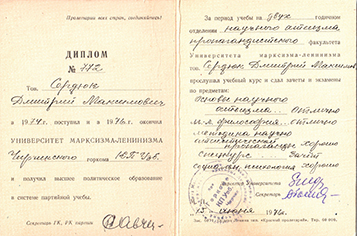 Пролетарии всех стран, соединяйтесь!
ДИПЛОМ
№ 772
Тов. Сердюк
Дмитрий Максимович
в 1974 г. поступил и в 1976 г. окончил
УНИВЕРСИТЕТ МАРКСИЗМА-ЛЕНИНИЗМА
Чирчикского горкома КП Узб.
и получил высшее политическое образование
в системе партийной учебы.
Секретарь ГК, РК партии
За период учебы на двух годичном
отделении научного атеизма
пропагандистского факультета
Университета марксизма-ленинизма
тов. Сердюк Дмитрий Максимов
прослушал учебный курс и сдал зачеты и экзамены
по предметам:
Основы научного
атеизма — отлично
м-л философия — отлично
методика научно
атеистической
пропаганды хорошо
спецкурс зачет
социальн. психология хорошо
Директор Университета
Секретарь
15 июня 1976 г.